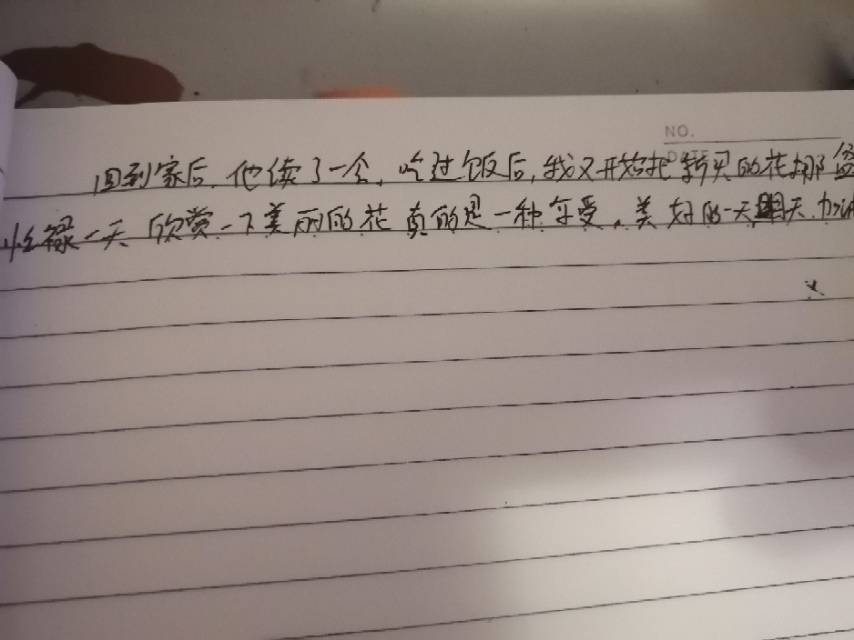 NO.
DATE
回到家后,他续了一个,吃过饭后,我又开始把新买的花挪盆
忙碌一天 欣赏一下美丽的花 真的是一种享受,美好的一天,明天加油